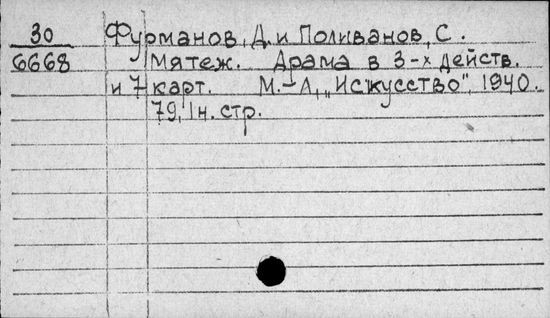 30 Фурманов, Д. и Поливанов, С.
6668 Мятеж. Драма в 3-х действ.
и 7 карт. М.-Л., "Искусство", 1940.
79, 1н. стр.